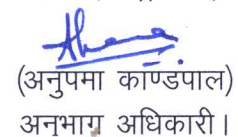 (अनुपमा काण्डपाल)
अनुभाग अधिकारी।